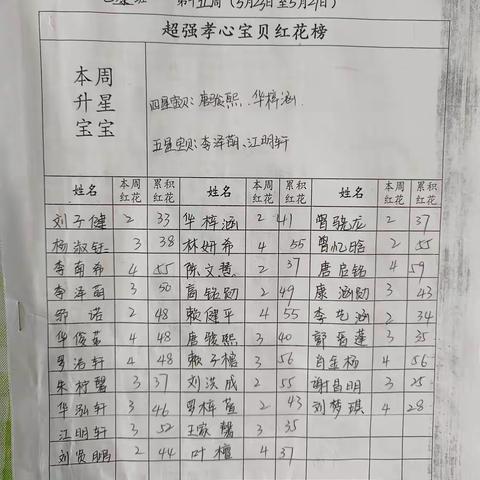 第十五周（5月23日至5月27日）
超强孝心宝贝红花榜
本周升星宝宝
四星宝贝：唐骏熙、华梓涵
五星宝贝：李泽萌、江明轩
姓名 本周红花 累积红花 姓名 本周红花 累积红花 姓名 本周红花 累积红花
刘子健 2 33 华梓涵 2 41 曾骁龙 2 37
杨淑钰 3 38 林妍希 4 55 曾忆晗 2 55
李南希 4 55 陈文慧 2 37 唐启铭 4 59
李泽萌 3 50 高铭勋 2 49 康涵勋 3 43
邹诺 2 48 赖健平 4 55 李艺涵 2 34
华俊英 4 48 唐骏熙 3 40 郭晋莲 3 35
罗浩轩 4 48 赖子榰 3 56 白金杨 4 56
朱柠馨 3 37 刘洪成 2 55 谢昌明 3 25
华泓轩 3 46 罗梓萱 2 43 刘梦琪 4 28
江明轩 3 52 王家馨 3 35
刘贤鹏 2 44 叶檀 4 37